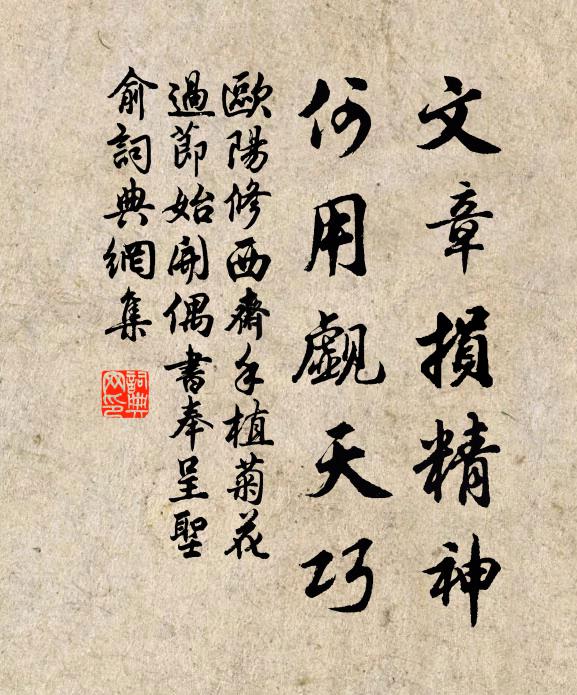 文章損精神
何用覷天巧
歐陽修西齋手植菊花
過節始開偶書奉呈聖
俞詞典網集
詞典
网印